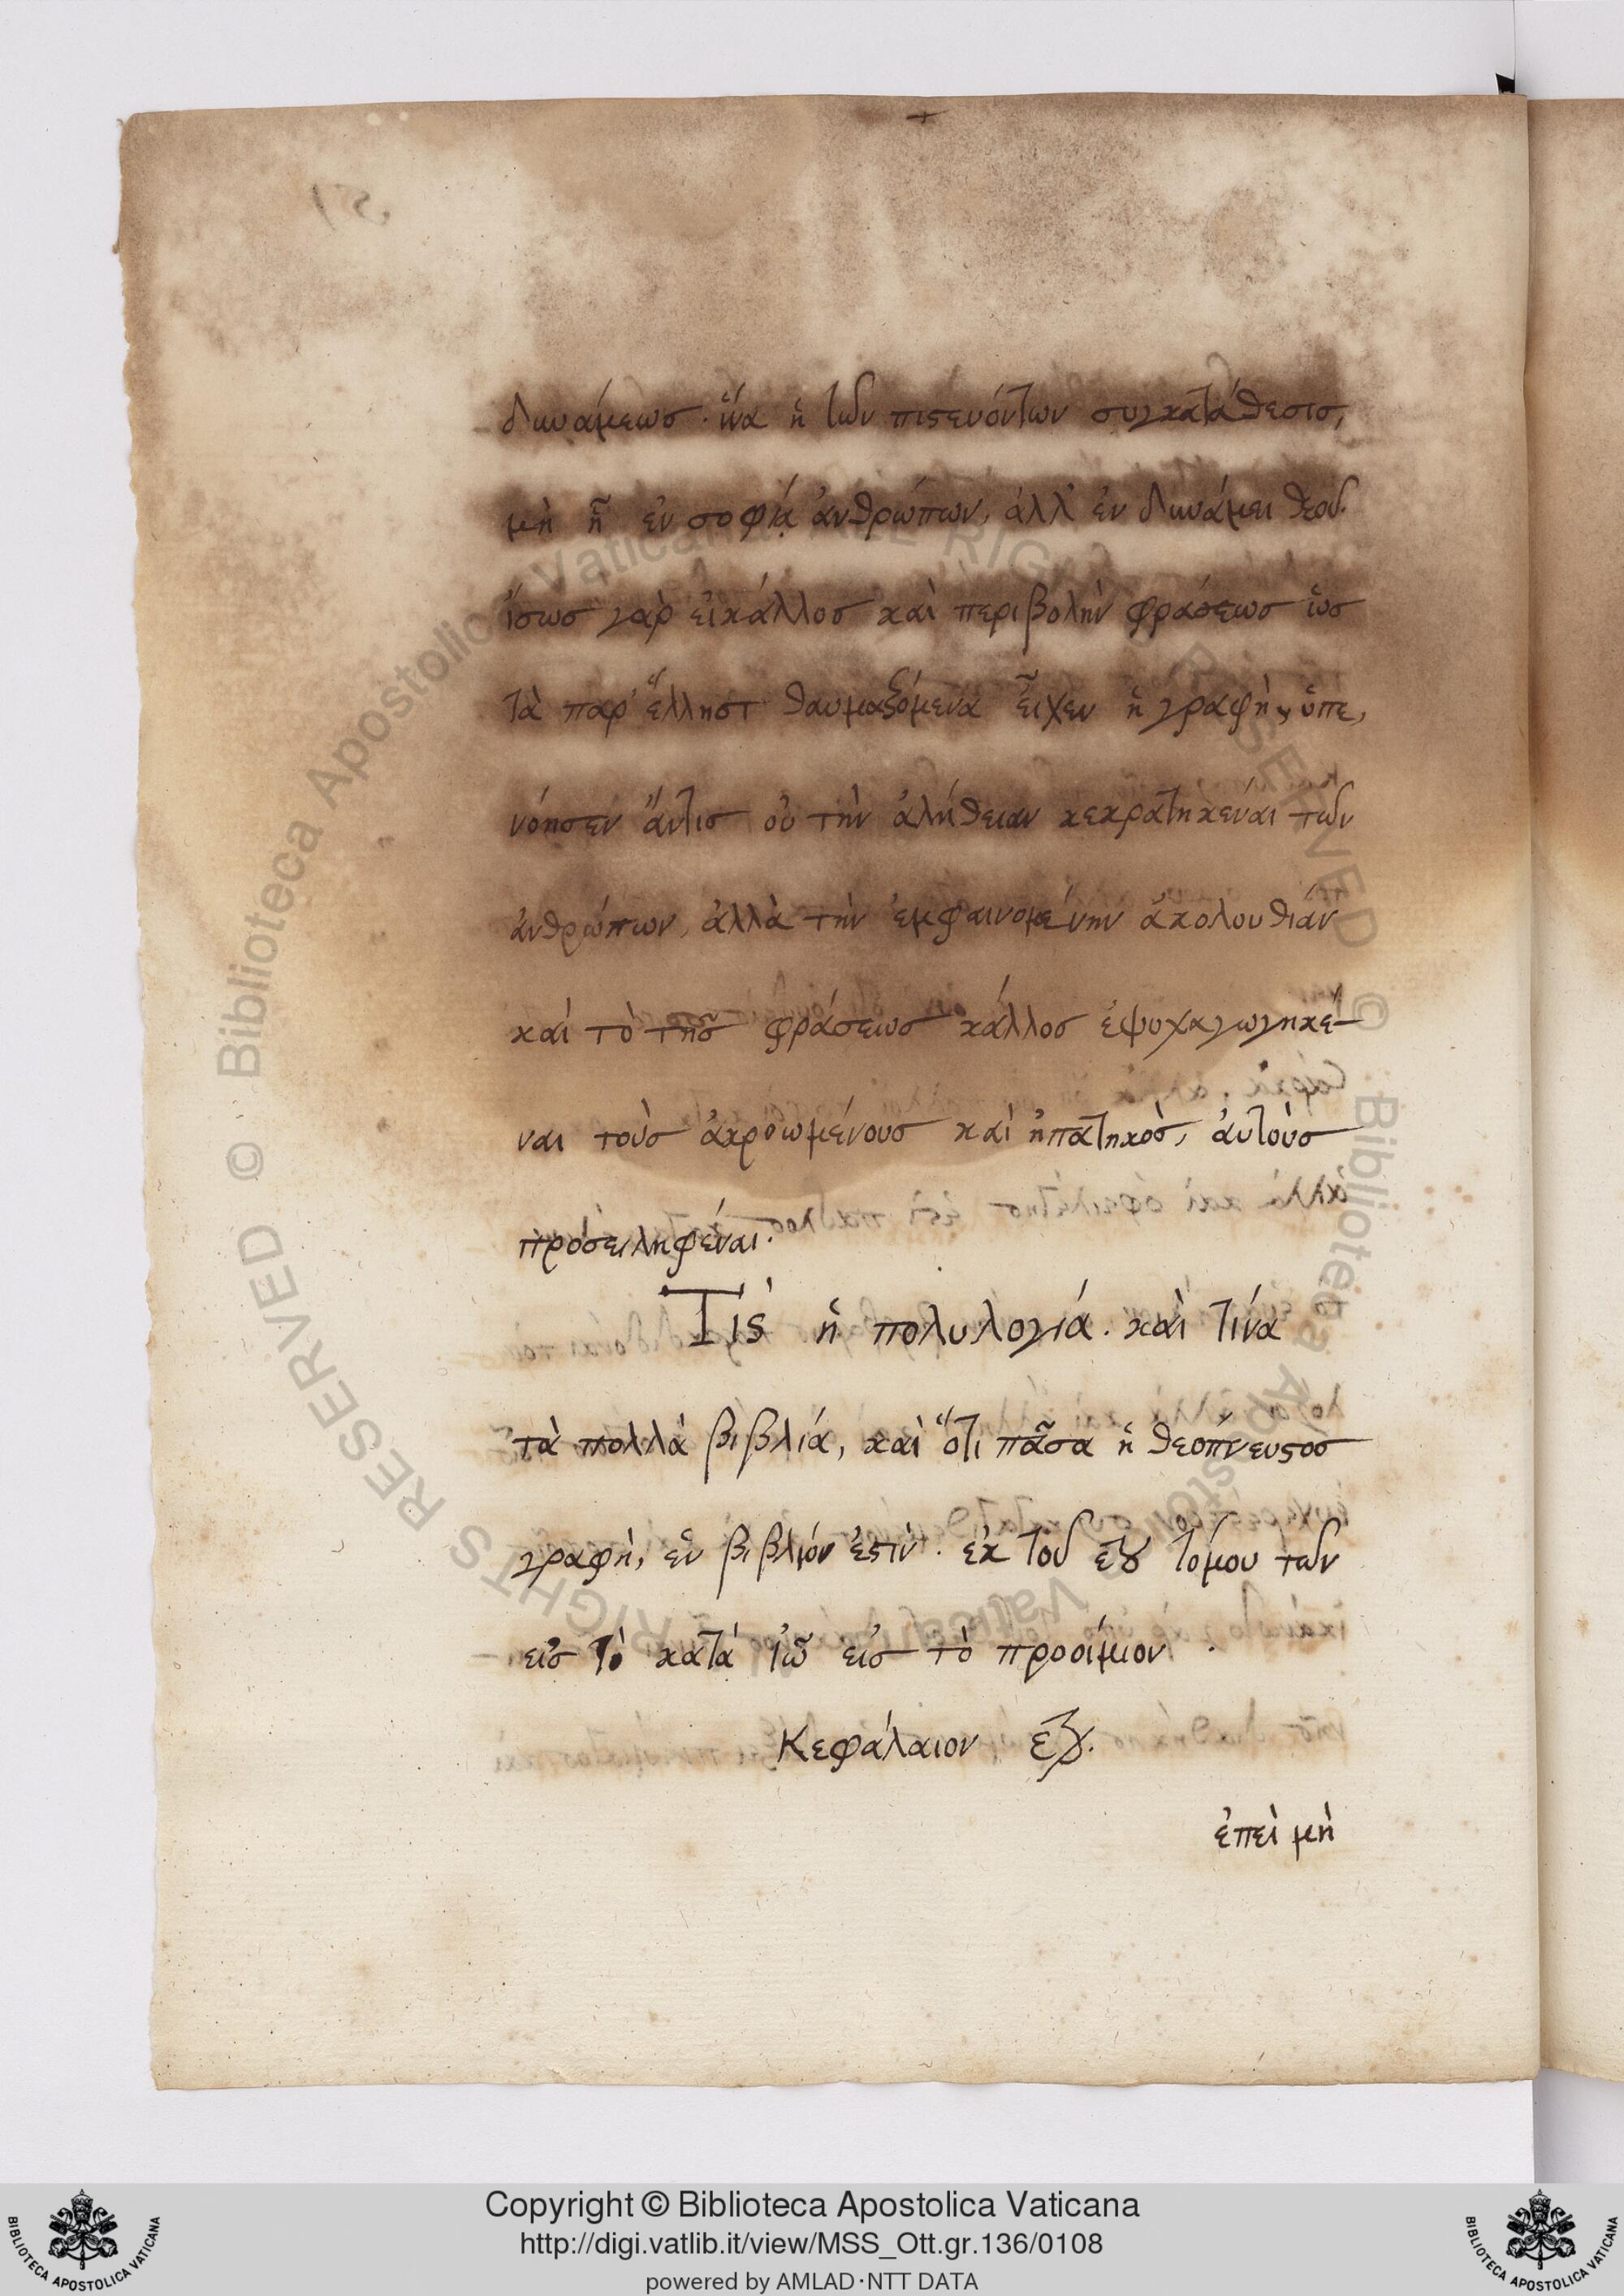 δυνάμεωσ· ἵνα ἡ τῶν πιϛευόντων συγκατάθεσισ,
μὴ ἦ ἐν σοφία ἀνθρώπων, ἀλλ' ἐν δυνάμει θεοῦ.
ἴσωσ γὰρ εἰκάλλοσ καὶ περιβολὴν φράσεωσ ὡσ
τὰ παρ' ἕλλησι θαυμαζόμενα εἶχεν ἡ γραφὴ, ὑπε,
νόησεν ἄντισ οὐ τὴν ἀλήθειαν κεκρατηκέναι τῶν
ἀνθρώπων, ἀλλὰ τὴν ἐμφαινομένην ἀκολουθίαν
καὶ τὸ τῆσ φράσεωσ κάλλοσ ἐψυχαγωγηκέ-
ναι τοὺσ ἀκροωμένουσ καὶ ἠπατηκὸσ, ἀυτοὺσ
προσειληφέναι.
Τίς ἡ πολυλογία. καὶ τίνα
τὰ πολλὰ βιβλία, καὶ ὅτι πᾶσα ἡ θεοπνευϛοσ
γραφὴ, ἓν βιβλίον ἐϛίν. ἐκ τοῦ εου τόμου τῶν
εἰσ τὸ κατὰ ἰῶ εἰσ τὸ προοίμιον.
Κεφάλαιον εον.
ἐπεὶ μὴ
Copyright © Biblioteca Apostolica Vaticana
http://digi.vatlib.it/view/MSS_Ott.gr.136/0108
powered by AMLAD·NTT DATA
BIBLIOTECA APOSTOLICA VATICANA
BIBLIOTECA APOSTOLICA VATICANA